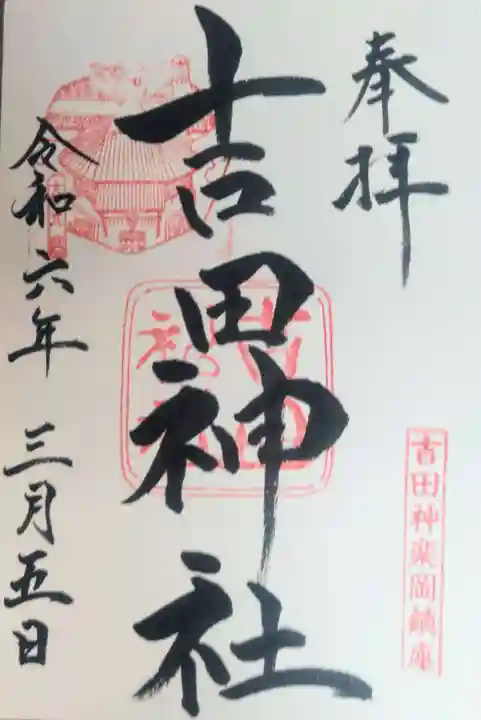 奉拝
吉田神社
令和六年 三月五日
吉田神楽岡鎮座